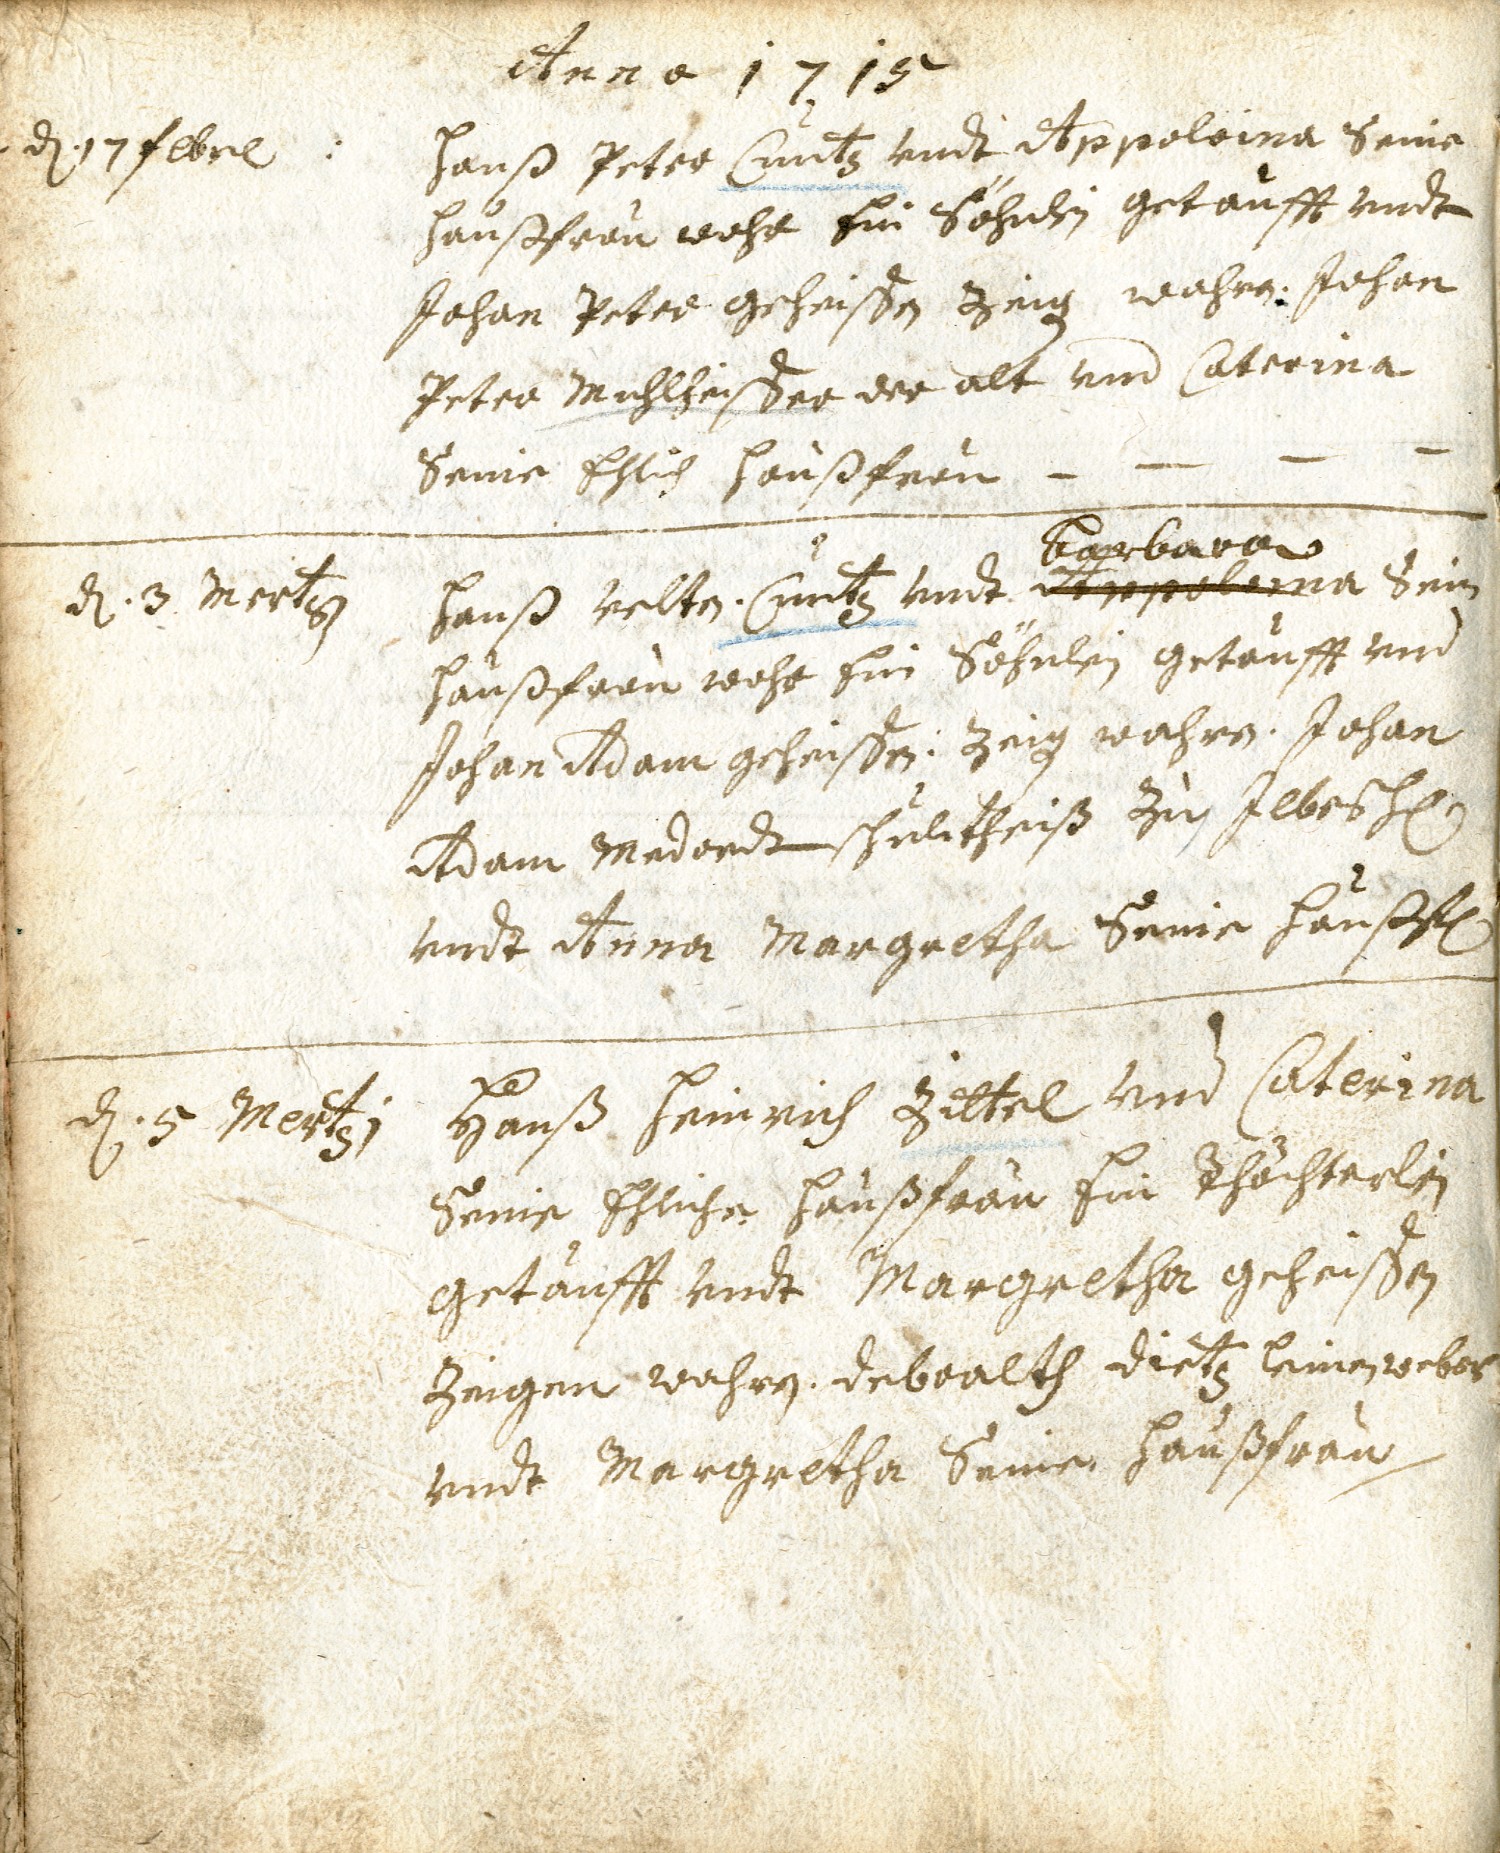 Anno 1715
d. 17 febrl : Hanß Peter Cuntz undt Appoloina Seine
Haußfrau wehr Ein Söhnlein getaufft undt
Johan Peter geheissen Zeug wahren. Johan
Peter Muhlheisser der alt und Caterina
Seine Ehlich Haußfrau – – – –
d. 3 Mertz Hanß Velten. Cuntz undt Barbara Appoloina Sein
Haußfrau wehr Ein Söhnlein getaufft und
Johan Adam geheissen. Zeug wahren. Johan
Adam Medardt schultheiß Zu Ilbesh
undt Anna Margretha Seine Haußfr
d. 5 Mertz Hanß Heinrich Zittel und Caterina
Seine Ehliche Haußfrau Ein Thöchterlein
getaufft undt Margretha geheissen
Zeugen wahren. deboalth dietz leinenweber
undt Margretha Seine Haußfrau